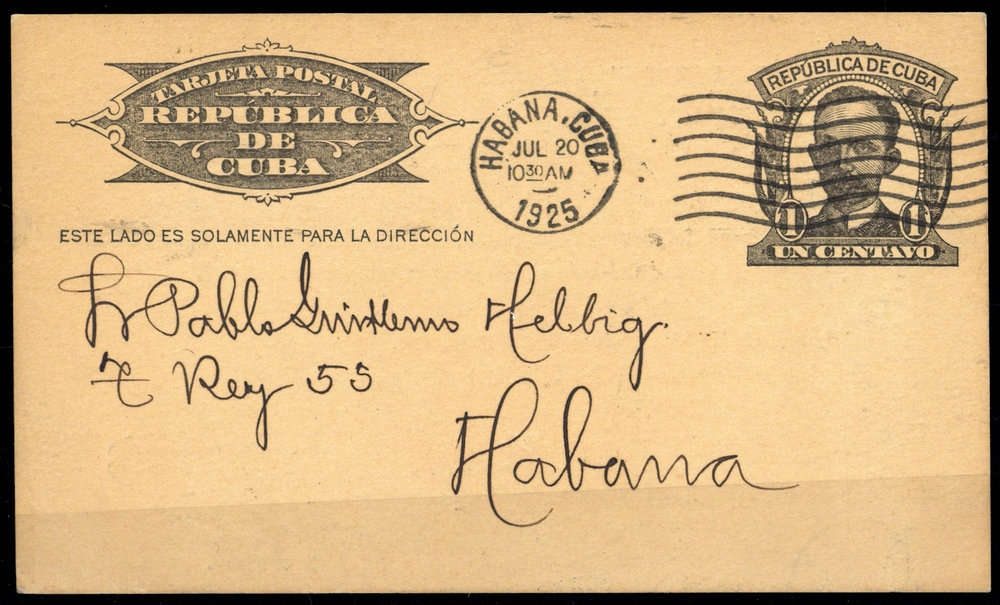 TARJETA POSTAL
REPÚBLICA
DE
CUBA
HABANA, CUBA
JUL 20
10 30 AM
1925
REPÚBLICA DE CUBA
1 1
UN CENTAVO
ESTE LADO ES SOLAMENTE PARA LA DIRECCIÓN
Sr Pablo Guillermo Helbig.
T Rey 55
Habana